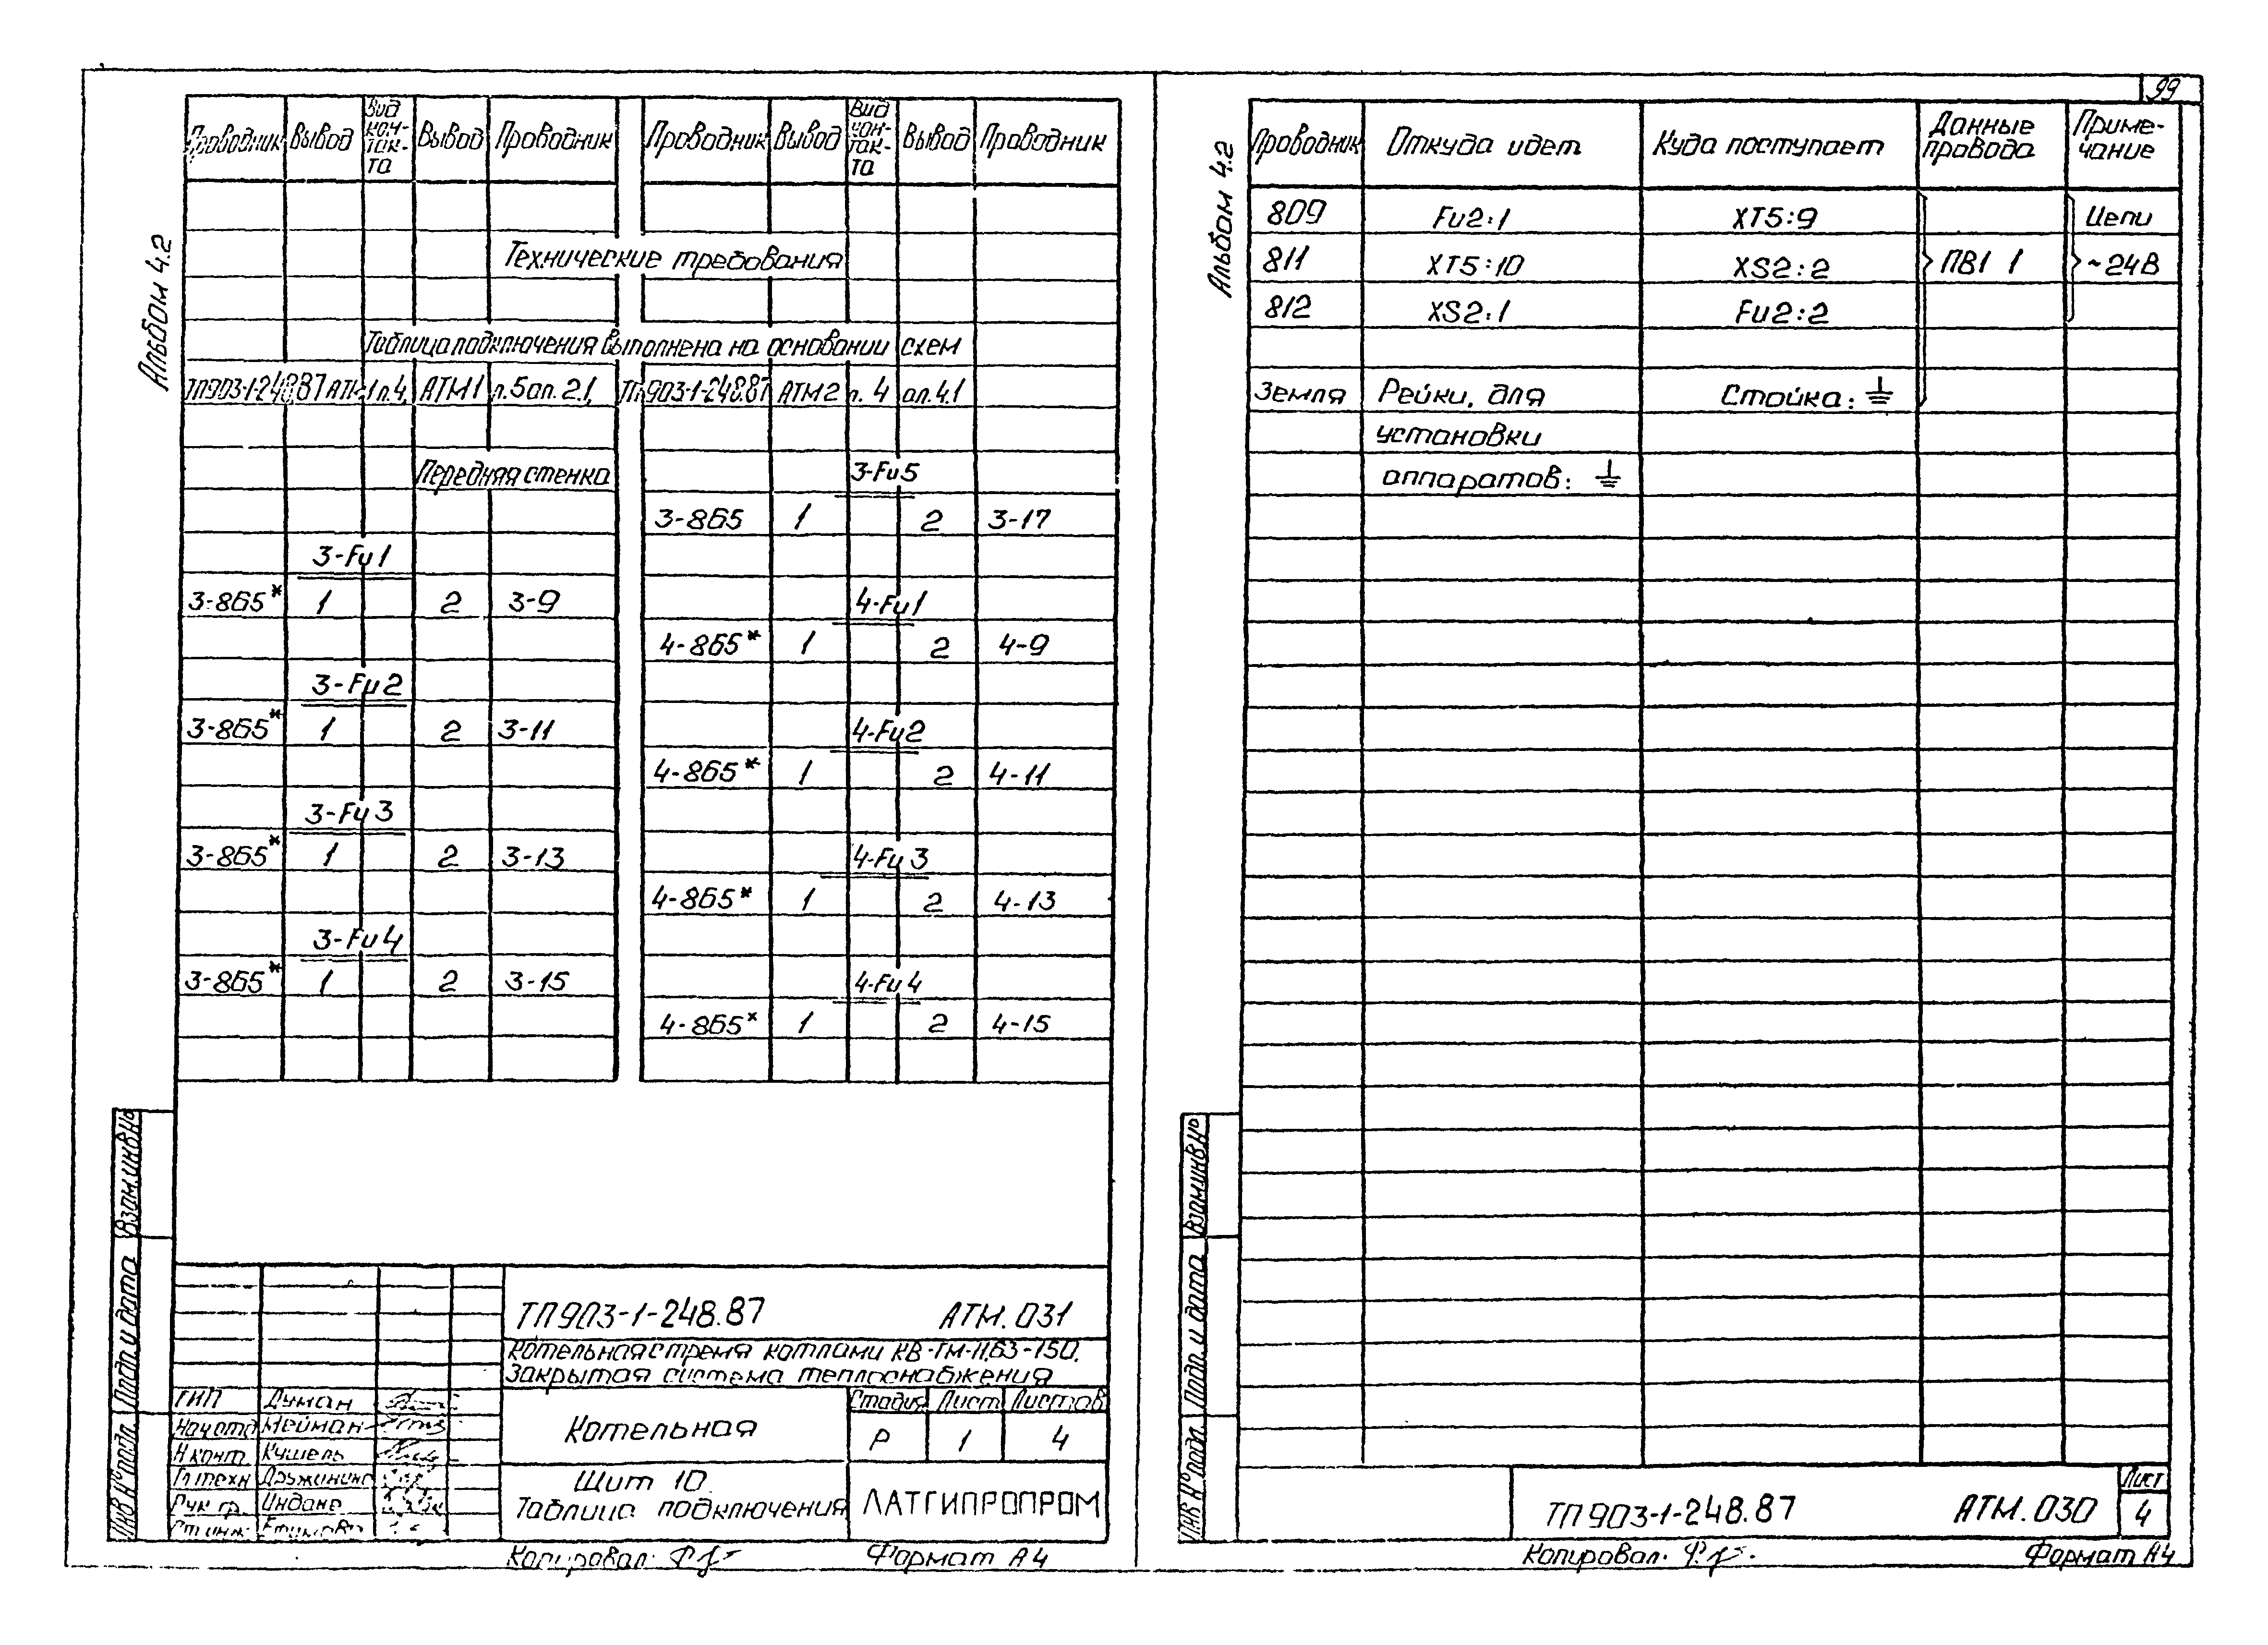 99
Альбом 4.2
Проводник Вывод Вид кон-так-та Вывод Проводник Проводник Вывод Вид кон-так-та Вывод Проводник
Технические требования
Таблица подключения выполнена на основании схем
ТП903-1-248.87 АТМ1 л.4, АТМ1 л.5 ал.2.1, ТП903-1-248.87 АТМ2 л.4 ал.4.1
Передняя стенка
3-Fu1
3-865* 1 2 3-9
3-Fu2
3-865* 1 2 3-11
3-Fu3
3-865* 1 2 3-13
3-Fu4
3-865* 1 2 3-15
3-Fu5
3-865 1 2 3-17
4-Fu1
4-865* 1 2 4-9
4-Fu2
4-865* 1 2 4-11
4-Fu3
4-865* 1 2 4-13
4-Fu4
4-865* 1 2 4-15
Взам.инв.№
Подп. и дата
Инв.№подл.
ТП903-1-248.87 АТМ.031
Котельная с тремя котлами КВ-ГМ-11,63-150.
Закрытая система теплоснабжения
ГИП Думан
Нач отд Мейман
Н конт. Кушель
Гл техн
Рук гр. Индане
Ст инж.
Котельная
Стадия Лист Листов
Р 1 4
Щит 10.
Таблица подключения
ЛАТГИПРОПРОМ
Копировал: Формат А4
Альбом 4.2
Проводник Откуда идет Куда поступает Данные провода Приме-чание
809 Fu2:1 XT5:9 Цепи
811 XT5:10 XS2:2 ПВ1 1 ~24В
812 XS2:1 Fu2:2
Земля Рейки, для Стойка: ⏚
установки
аппаратов: ⏚
Взам.инв.№
Подп. и дата
Инв.№подл.
ТП903-1-248.87 АТМ.030
Лист
4
Копировал. Формат А4